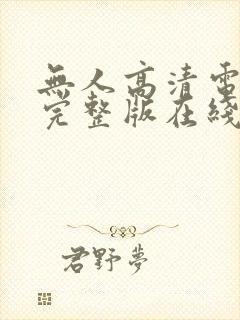 無人高清電
完整版在綫
君野夢